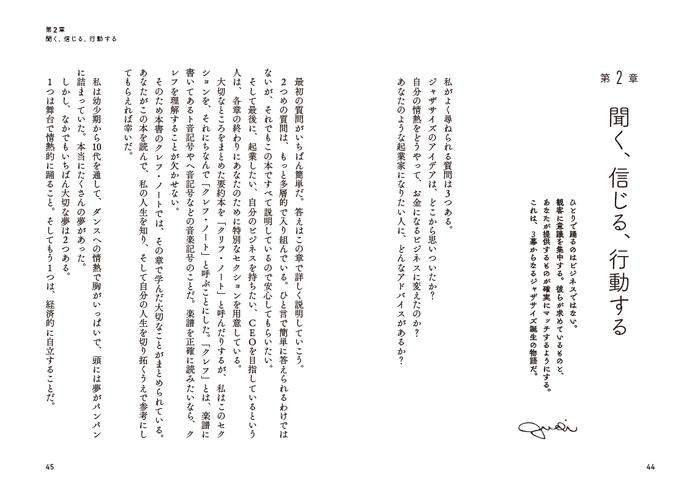 第2章
聞く、信じる、行動する
ひとりで踊るのはビジネスではない。
観客に意識を集中する。彼らが求めているものと、
あなたが提供するものが確実にマッチするようにする。
これは、3幕からなるジャザサイズ誕生の物語だ。
Judi
私がよく尋ねられる質問は3つある。
ジャザサイズのアイデアは、どこから思いついたか?
自分の情熱をどうやって、お金になるビジネスに変えたのか?
あなたのような起業家になりたい人に、どんなアドバイスがあるか?
44
第2章
聞く、信じる、行動する
最初の質問がいちばん簡単だ。答えはこの章で詳しく説明していこう。
2つめの質問は、もっと多層的で入り組んでいる。ひと言で簡単に答えられるわけでは
ないが、それでもこの本ですべて説明しているので安心してもらいたい。
そして最後に、起業したい、自分のビジネスを持ちたい、CEOを目指しているという
人は、各章の終わりにあなたのために特別なセクションを用意している。
大切なところをまとめた要約本を「クリフ・ノート」と呼んだりするが、私はこのセク
ションを、それにちなんで「クレフ・ノート」と呼ぶことにした。「クレフ」とは、楽譜に
書いてあるト音記号やヘ音記号などの音楽記号のことだ。楽譜を正確に読みたいなら、ク
レフを理解することが欠かせない。
そのため本書のクレフ・ノートでは、その章で学んだ大切なことがまとめられている。
あなたがこの本を読んで、私の人生を知り、そして自分の人生を切り拓くうえで参考にし
てもらえれば幸いだ。
私は幼少期から10代を通して、ダンスへの情熱で胸がいっぱいで、頭には夢がパンパン
に詰まっていた。本当にたくさんの夢があった。
しかし、なかでもいちばん大切な夢は2つある。
1つは舞台で情熱的に踊ること。そしてもう1つは、経済的に自立することだ。
45